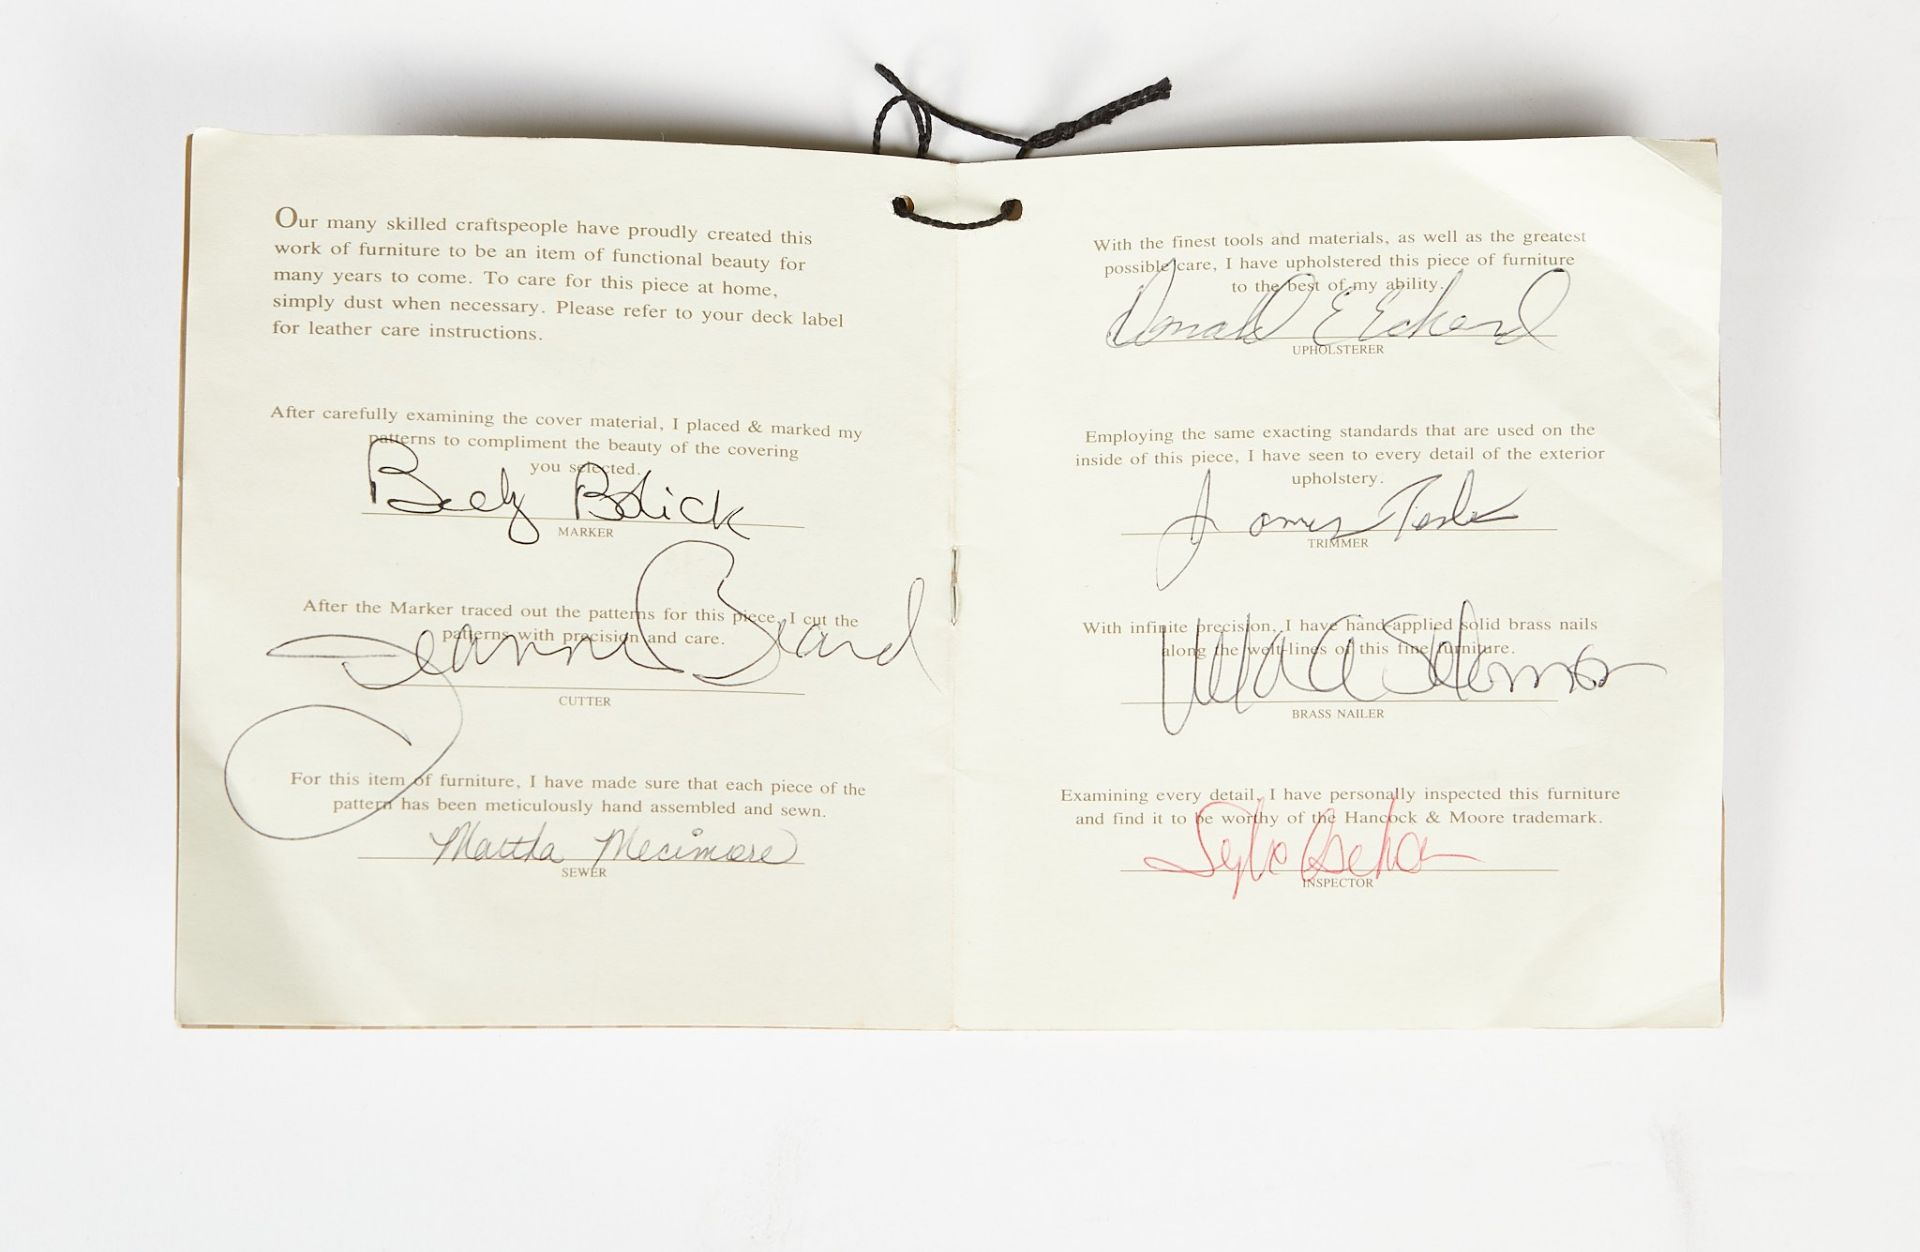 Our many skilled craftspeople have proudly created this
work of furniture to be an item of functional beauty for
many years to come. To care for this piece at home,
simply dust when necessary. Please refer to your deck label
for leather care instructions.
After carefully examining the cover material, I placed & marked my
patterns to compliment the beauty of the covering
you selected.
Bolick
MARKER
After the Marker traced out the patterns for this piece, I cut the
patterns with precision and care.
Jeanne Beard
CUTTER
For this item of furniture, I have made sure that each piece of the
pattern has been meticulously hand assembled and sewn.
Martha Mecimore
SEWER
With the finest tools and materials, as well as the greatest
possible care, I have upholstered this piece of furniture
to the best of my ability.
Donald E Eckard
UPHOLSTERER
Employing the same exacting standards that are used on the
inside of this piece, I have seen to every detail of the exterior
upholstery.
James
TRIMMER
With infinite precision, I have hand-applied solid brass nails
along the welt-lines of this fine furniture.
BRASS NAILER
Examining every detail, I have personally inspected this furniture
and find it to be worthy of the Hancock & Moore trademark.
INSPECTOR